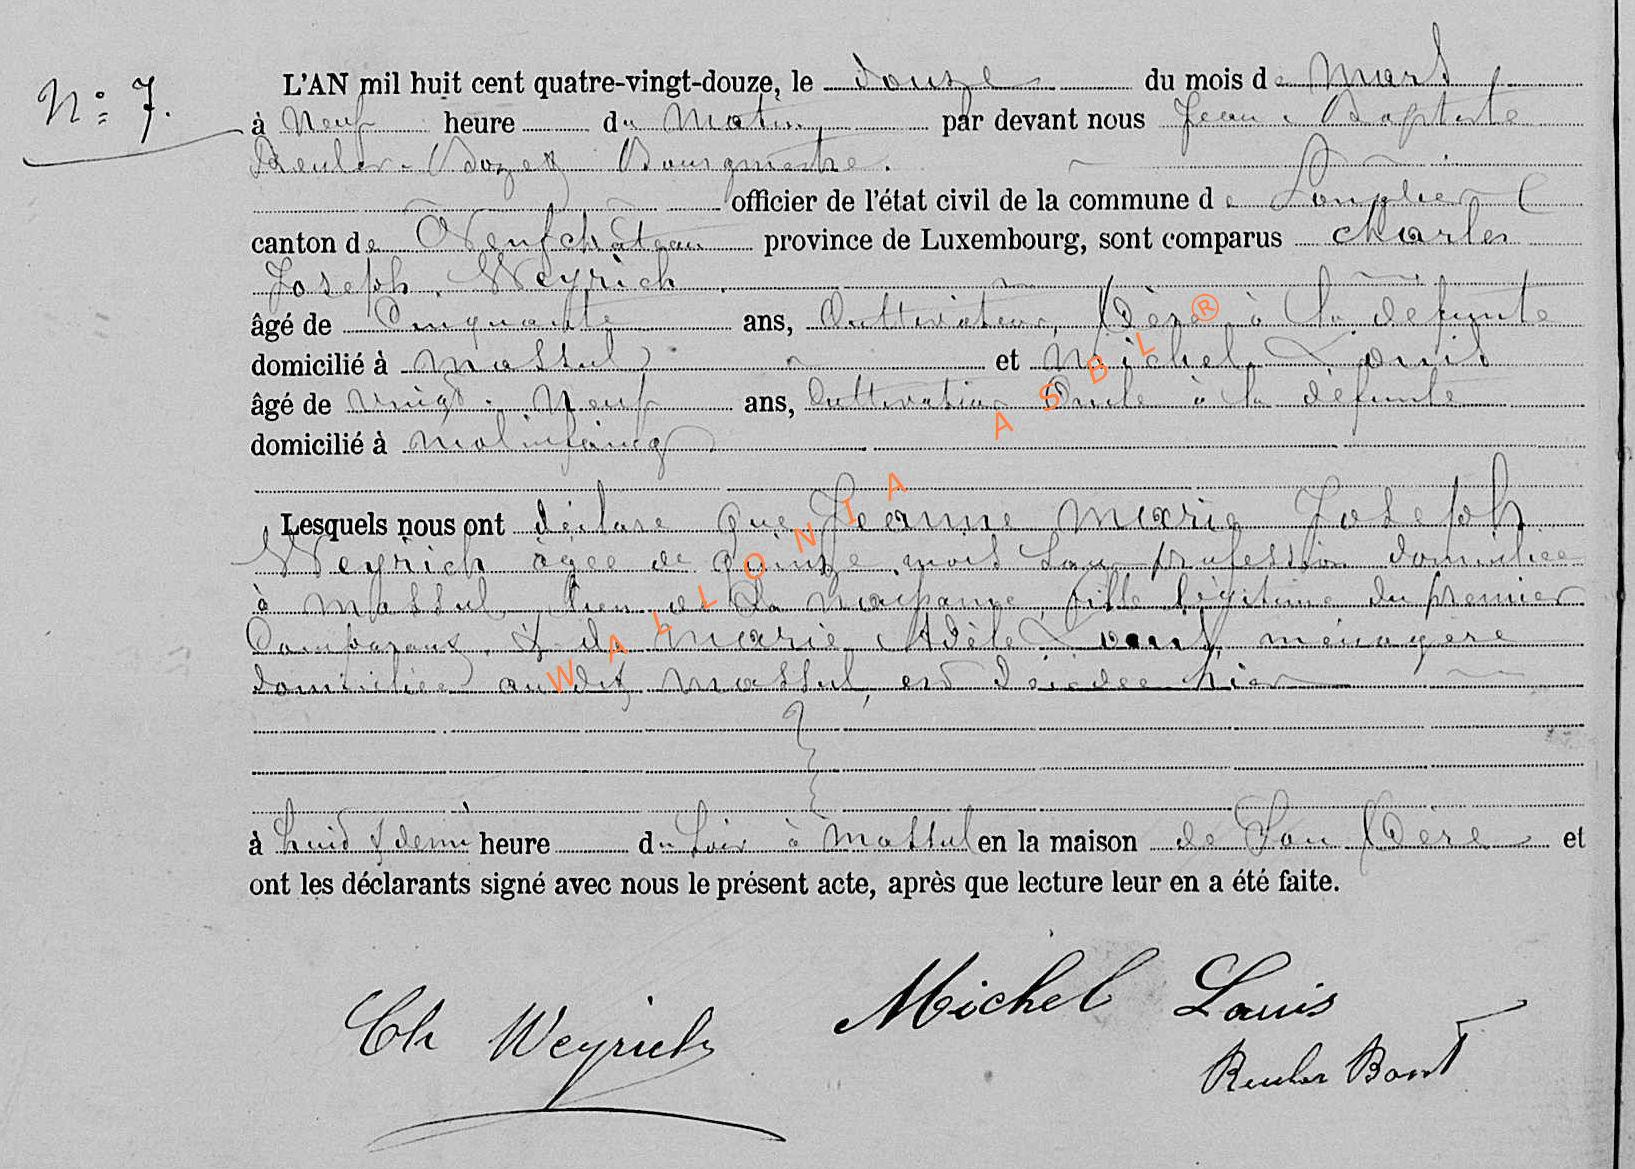 N° 7.
L'AN mil huit cent quatre-vingt-douze, le douze du mois de Mars
à Neuf heure du Matin, par devant nous Jean Baptiste
Reuler Bozet Bourgmestre.
officier de l'état civil de la commune de Longlier
canton de Neufchâteau province de Luxembourg, sont comparus Charles
Joseph Weyrich
âgé de Cinquante ans, Cultivateur, Père à la défunte
domicilié à Massul et Michel Louis
âgé de vingt-Neuf ans, Cultivateur Oncle à la défunte
domicilié à Molinfaing
Lesquels nous ont déclaré que Jeanne Marie Joseph
Weyrich âgée de Quinze mois San profession domiciliée
à Massul lieu de Sa naissance, fille légitime du premier
Comparant & de Marie Adèle Louis, ménagère
domiciliée au dit Massul, est décédée hier
à huit & demi heure du Soir à Massul en la maison de Son Père et
ont les déclarants signé avec nous le présent acte, après que lecture leur en a été faite.
Ch Weyrich Michel Louis
Reuler
WALLONIA ASBL ®